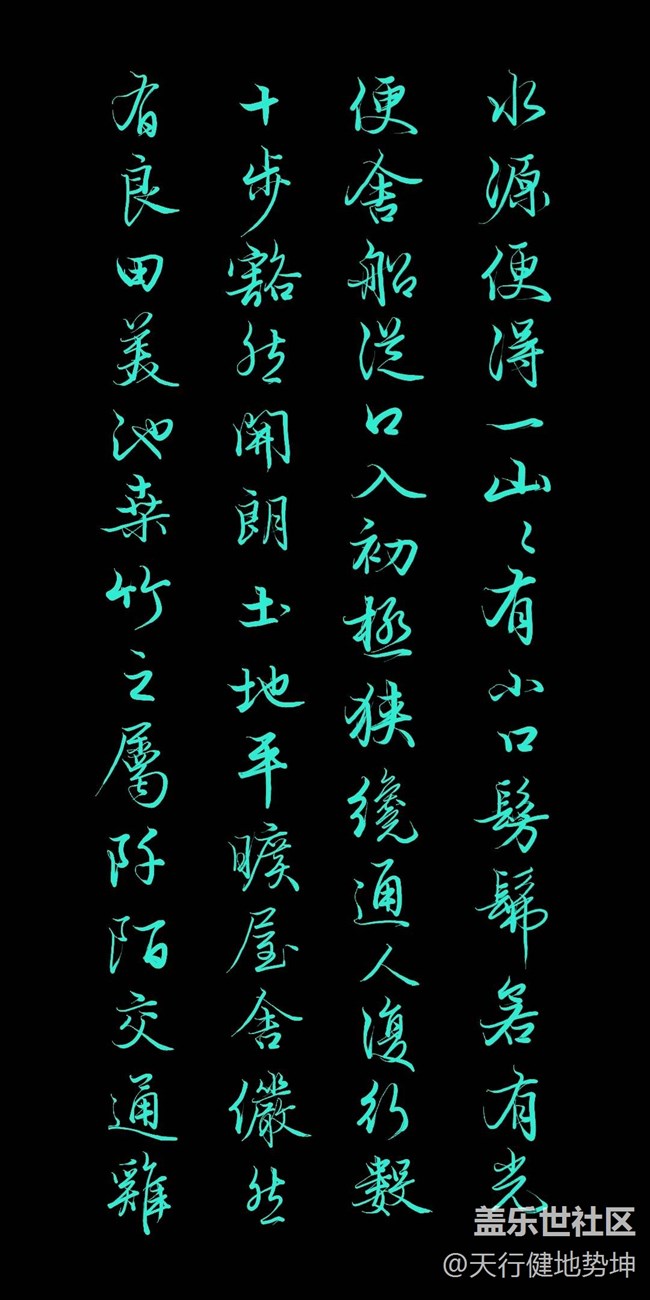 水源便得一山〻有小口髣髴若有光
便舍船從口入初極狹纔通人復行數
十步豁然開朗土地平曠屋舍儼然
有良田美池桑竹之屬阡陌交通雞
盖乐世社区
@天行健地势坤